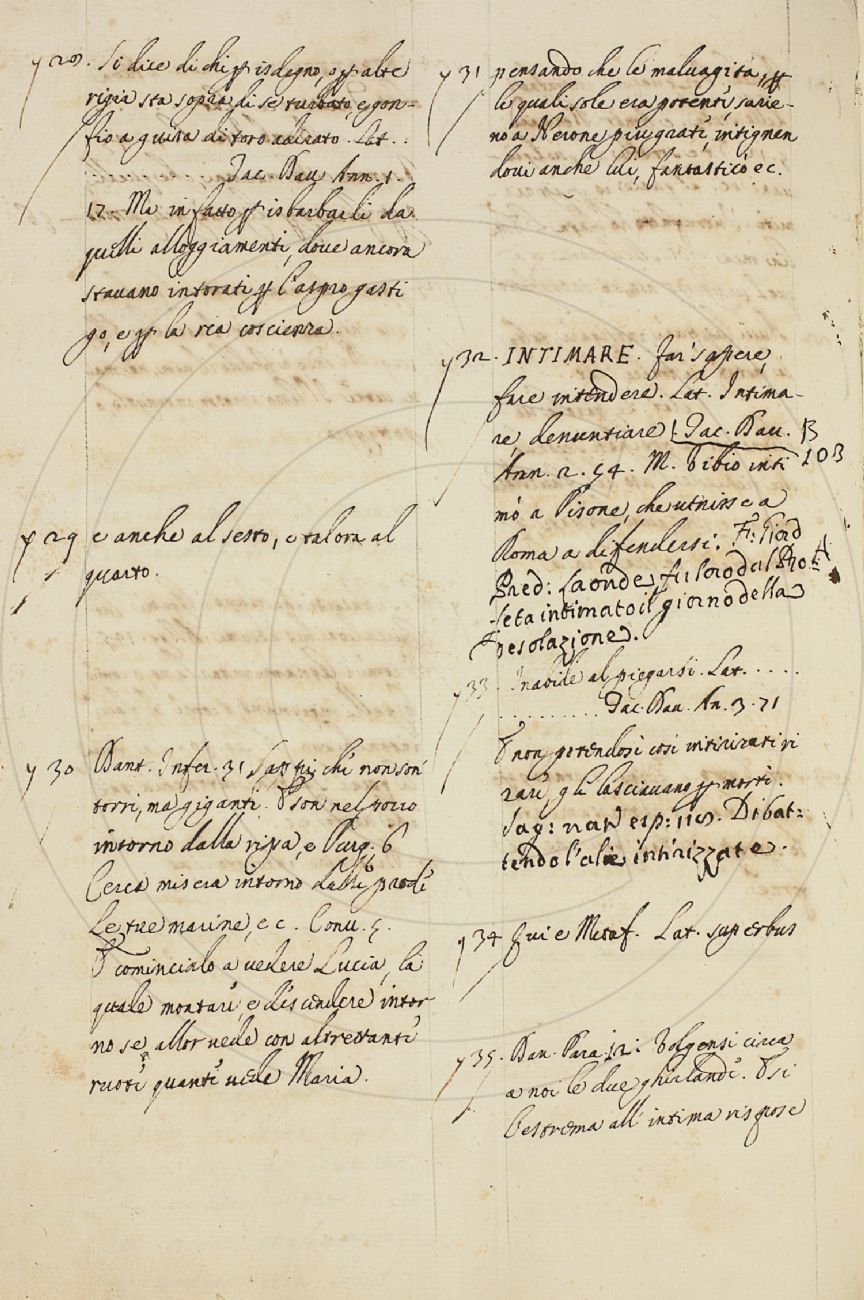 28. Si dice di chi p isdegno, o p alte
rigia sta sopra di se turbato, e gon-
fio a guisa di toro adirato. Lat. . .
. . . . . . . . . . Tac. Dav. Ann. 1.
17. Ma in fatto p isbarbagli da
quelli alloggiamenti, dove ancora
stavano intorati p l'aspro gasti
go, e p la ria coscienza.
29 e anche al sesto, e talora al
quarto.
30 Dant. Infer. 31 Sappi, chi non son
torri, ma giganti. E son nel pozzo
intorno dalla ripa, e Purg. 6
Cerca misera intorno dalle prode
Le tue marine, ec. Conv.
E comincialo a vedere Lucia, la
quale montare, e discendere intor
no se allor vede con altrettante
ruote quante vede Maria.
31 pensando che le malvagità, p
le quali sole era potente, sarie-
no a Nerone piu grate, intignan
dovi anche lui, fantastico ec.
32. INTIMARE. Far' sapere,
fare intendere. Lat. Intima-
re, denuntiare Tac. Dav. B
Ann. 2. 54. M. Vibio inti 103
mò a Pisone, che venisse a
Roma a difendersi. F: Giord
Pred: Laonde fu loro dal Pro- A
feta intimato il giorno della
Desolazione.
33. Inabile al piegarsi. Lat. . . . .
. . . . . . . . . Tac. Dav. An. 3. 71
E non potendosi così intirizati ri
zare, gli lasciavano p morti.
Sag: nat esp: 118. Dibat:
tendo l'alie intirizzate.
34 Qui e Metaf. Lat. superbus
35. Dan. Para. 12: Volgensi circa
a noi le due ghirlande. E si
l'estrema all'intima rispose